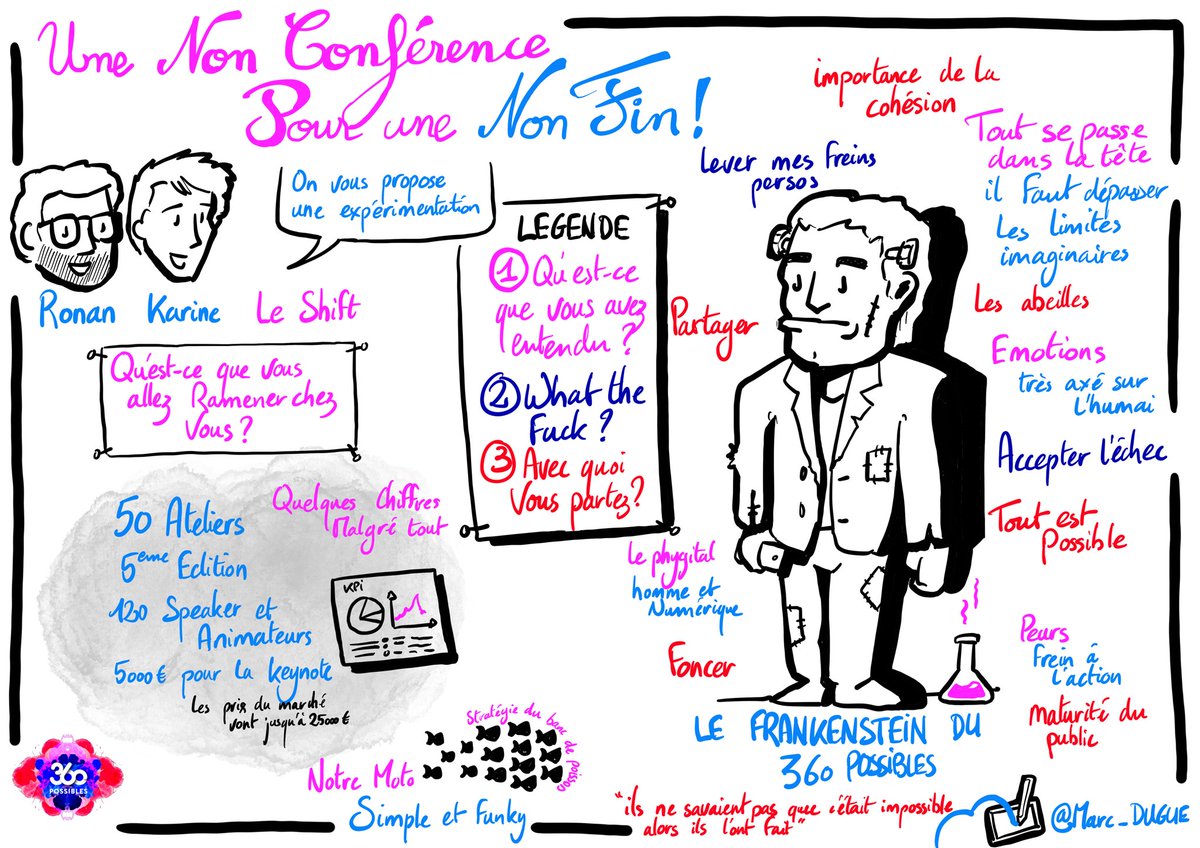 Une Non Conférence
Pour une Non Fin!
On vous propose
une expérimentation
Ronan Karine Le Shift
Qu'est-ce que vous
allez Ramener chez
Vous?
LEGENDE
1 Qu'est-ce
que vous avez
entendu?
2 What the
Fuck?
3 Avec quoi
Vous partez?
Quelques chiffres
Malgré tout
50 Ateliers
5eme Edition
120 Speaker et
Animateurs
5000€ pour la keynote
Les prix du marché
vont jusqu'à 25000€
KPi
360
POSSIBLES
Notre Moto
Simple et Funky
Stratégie du banc de poissons
importance de la
cohésion
Lever mes freins
persos
Tout se passe
dans la tête
il faut dépasser
Les limites
imaginaires
Les abeilles
Partager
Emotions
très axé sur
L'humai
Accepter l'échec
Tout est
Possible
Le phygital
homme et
Numérique
Foncer
Peurs
Frein à
l'action
Maturité du
public
LE FRANKENSTEIN DU
360 POSSIBLES
"ils ne savaient pas que c'était impossible
alors ils l'ont fait"
@Marc_DUGUE